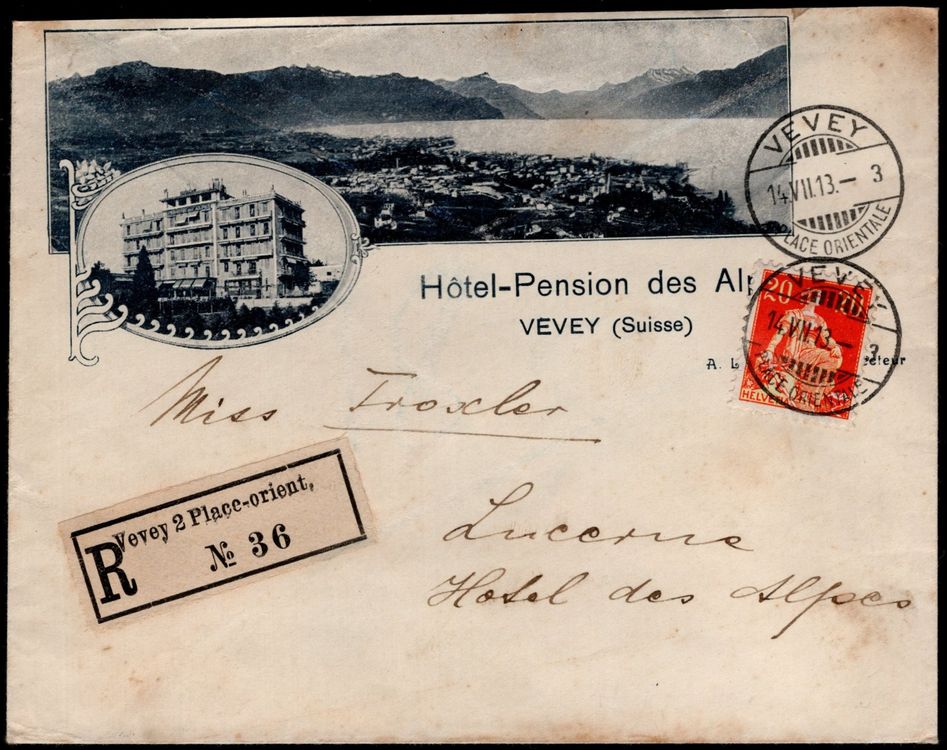 VEVEY
14.VII.13.— 3
PLACE ORIENTALE
Hôtel-Pension des Alp
VEVEY (Suisse)
A. L
cteur
20
HELVETIA
VEVEY
14.VII.13.— 3
PLACE ORIENTALE
Miss Troxler
R
Vevey 2 Place-orient.
№ 36
Lucerne
Hotel des Alpes